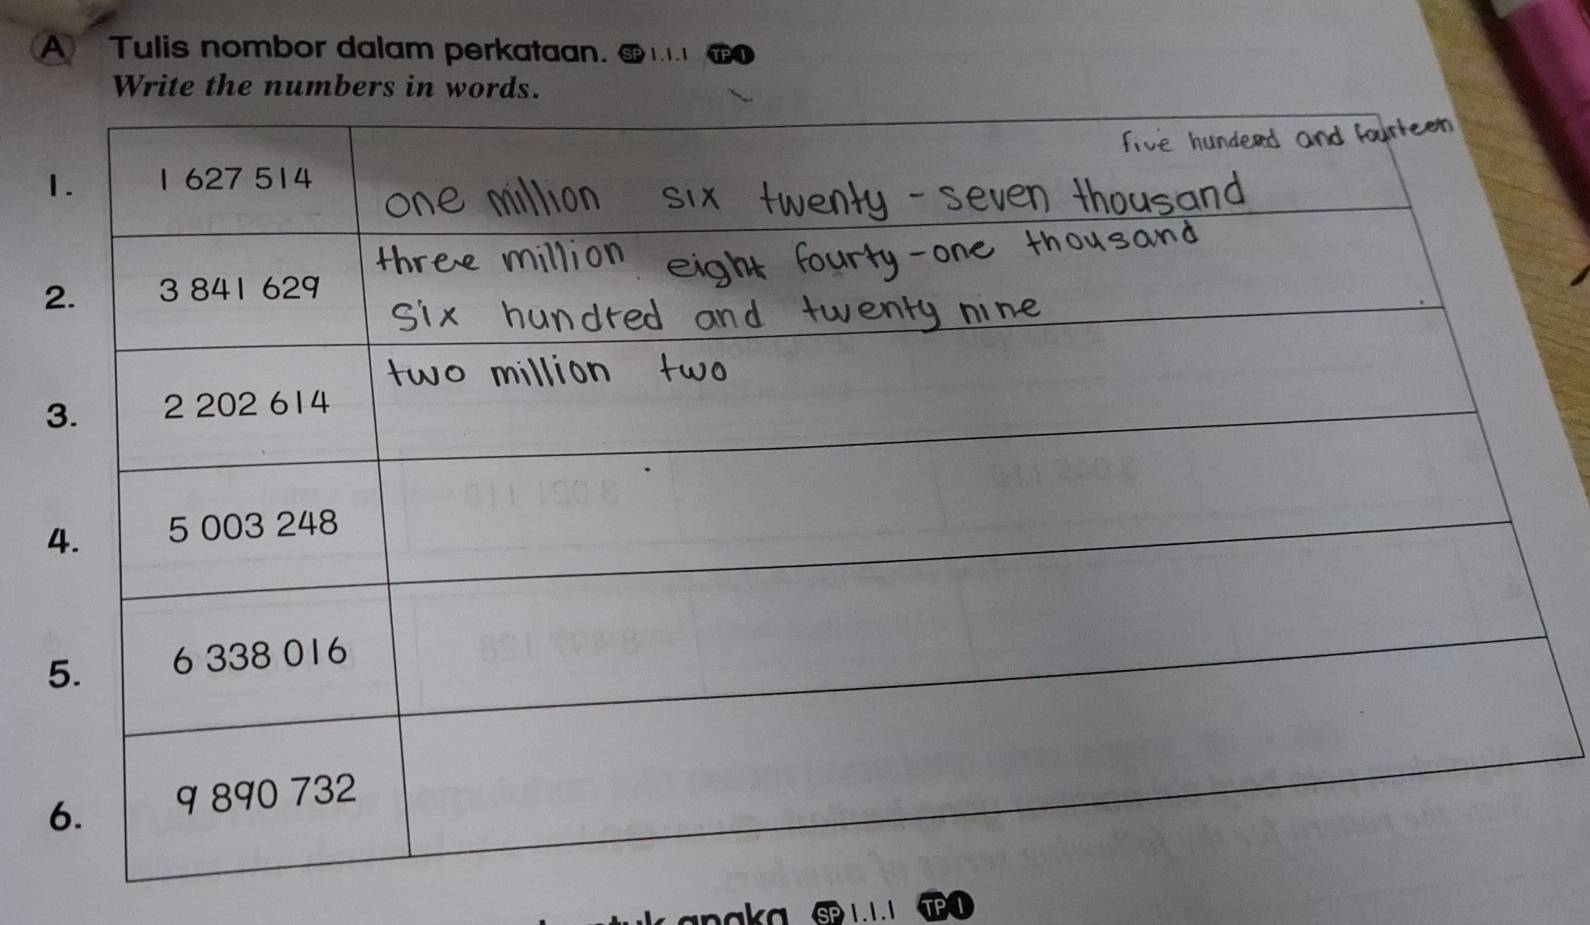 A Tulis nombor dalam perkataan. SP 1.1.1 TP 1
Write the numbers in words.
five hundered and fourteen
1. 1 627 514 one million six twenty-seven thousand
2. 3 841 629 three million eight fourty-one thousand
six hundred and twenty nine
3. 2 202 614 two million two
4. 5 003 248
5. 6 338 016
6. 9 890 732
angka SP 1.1.1 TP 1